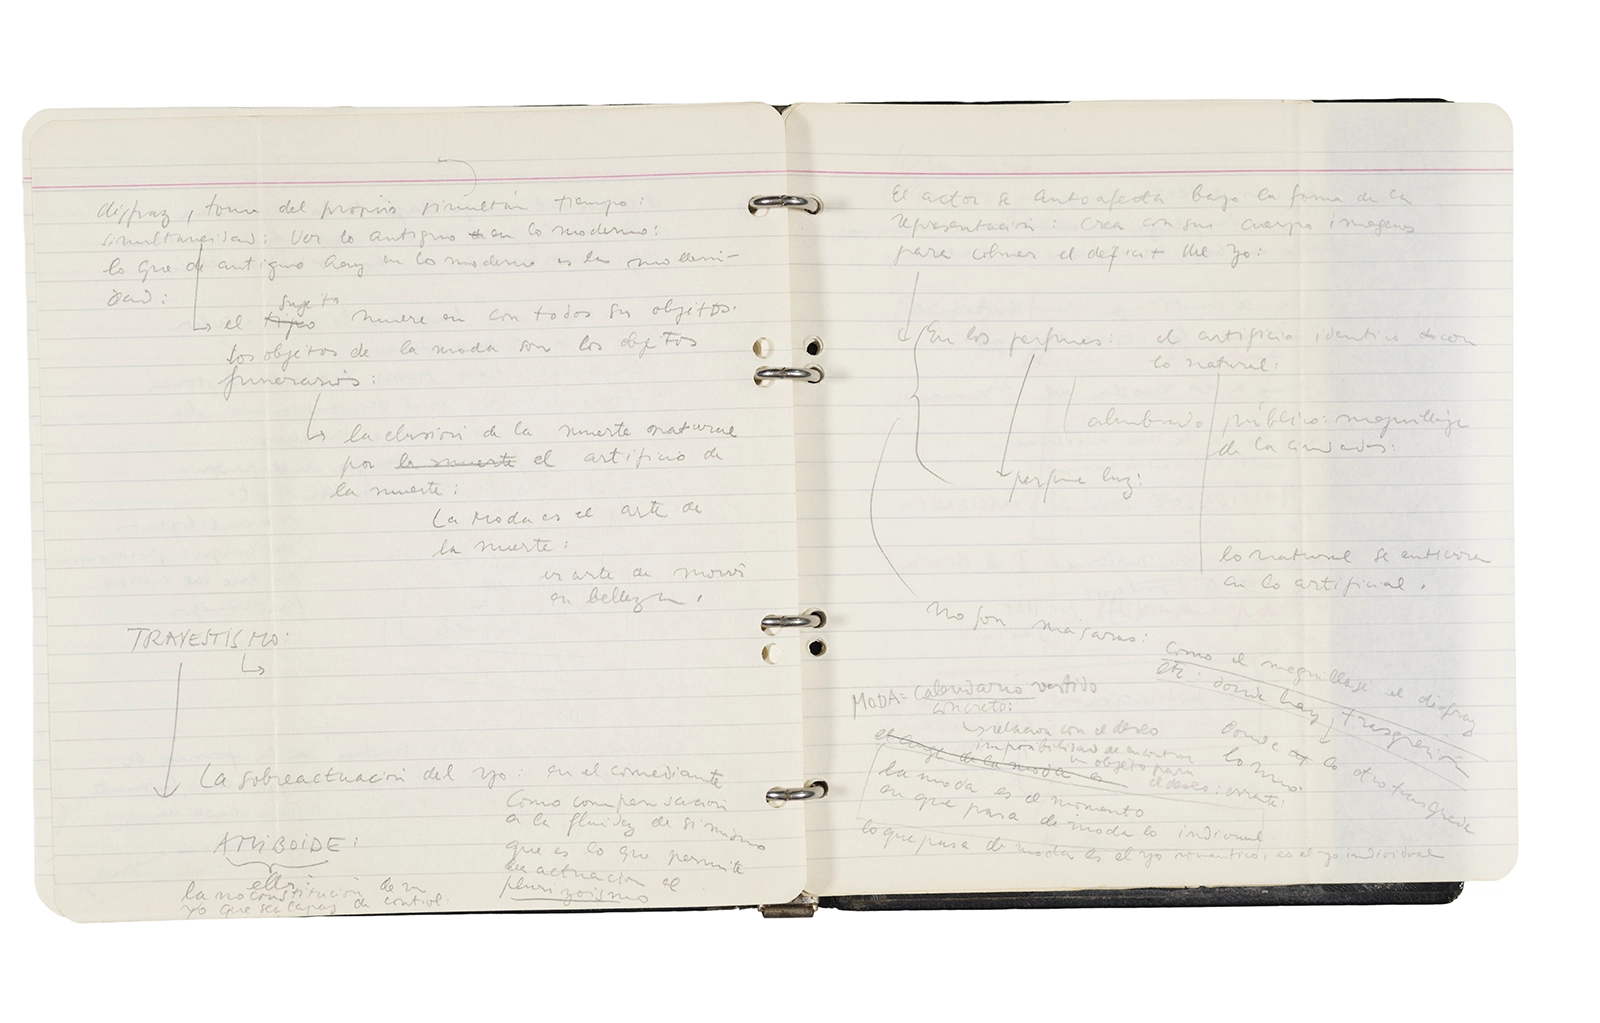 disfraz, toma del propio tiempo:
simultaneidad: Ver lo antiguo en lo moderno:
lo que de antiguo hay en lo moderno es la moderni-
dad:
sujeto
el tipo muere con todos sus objetos.
los objetos de la moda son los objetos
funerarios:
la elusión de la muerte natural
por la muerte el artificio de
la muerte:
La Moda es el arte de
la muerte:
el arte de morir
en belleza.
TRAVESTISMO:
La sobreactuación del yo: en el comediante
como compensación
a la fluidez de si mismo
que es lo que permite
la actuación el
pluriyoismo
AMIBOIDE:
ello:
la no constitución de un
yo que sea capaz de control.
El actor se autoafecta bajo la forma de la
representación: crea con su cuerpo imagenes
para colmar el deficit del yo:
En los perfumes: el artificio identico con
lo natural:
alumbrado público: maquillaje
de la ciudad:
perfume luz:
lo natural se
en lo artificial.
No son máscaras:
como el maquillaje el disfraz
etc. donde hay trasgresión
Donde lo otro trasgrede
lo mismo.
MODA = calendario vestido
concreto:
relacion con el deseo
imposibilidad de encontrar
un objeto para
el deseo: errate:
el auge de la moda es
la moda es el momento
en que pasa de moda lo individual.
lo que pasa de moda es el yo romantico: es el yo individual